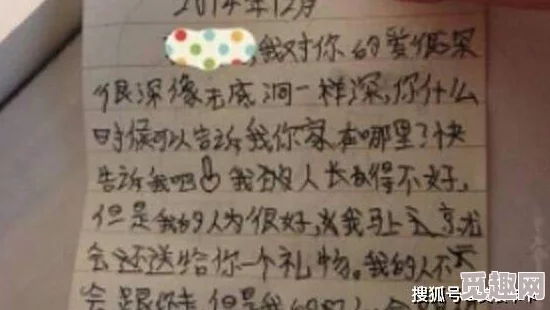 2014年12月
,我对你的爱很深
很深像无底洞一样深,你什么
时候可以告诉我你家在哪里了快
告诉我吧 我的人长得不好,
但是我的人为很好,我马上
会还送给你一个礼物。我的人不
会跟你走,但是我的
搜狐号
觅趣网